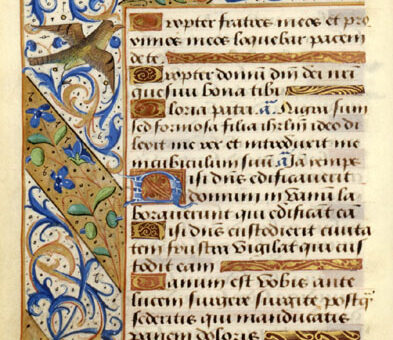 Propter fratres meos et pro
ximos meos loquebar pacem
de te.
Propter domũ dñi dei nr̃i
quesiui bona tibi
Gloria patri. añ. Nigra sum
sed formosa filia ihrl̃m ideo di
lexit me rex et introduxit me
in cubiculum suũ. añ. Iã temps
Nisi dñs edificauerit
domum in vanum la
borauerunt qui edificãt eã
Nisi dñs custodierit ciuita
tem frustra vigilat qui cus
todit eam
Vanum est vobis ante
lucem surgere surgite postq̃
sederitis qui manducatis
panem doloris